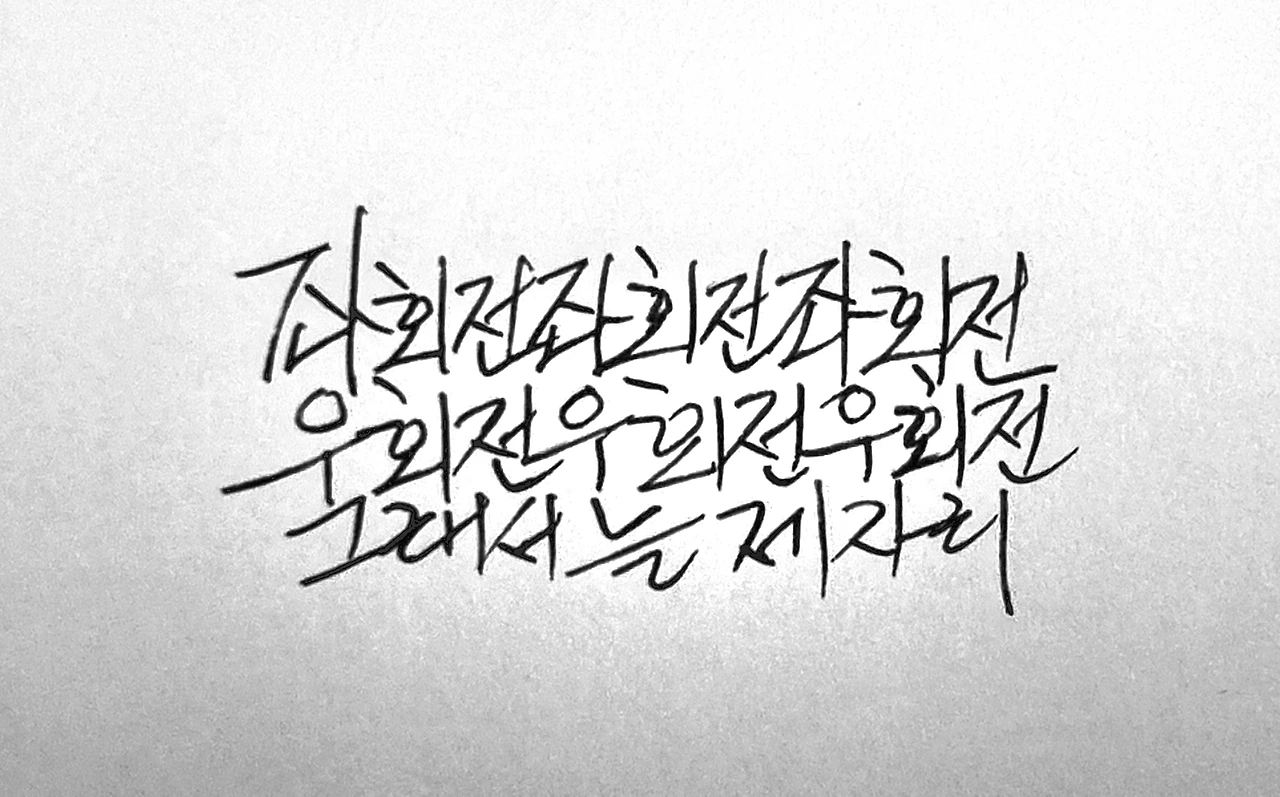 좌회전좌회전좌회전
우회전우회전우회전
그래서 늘 제자리